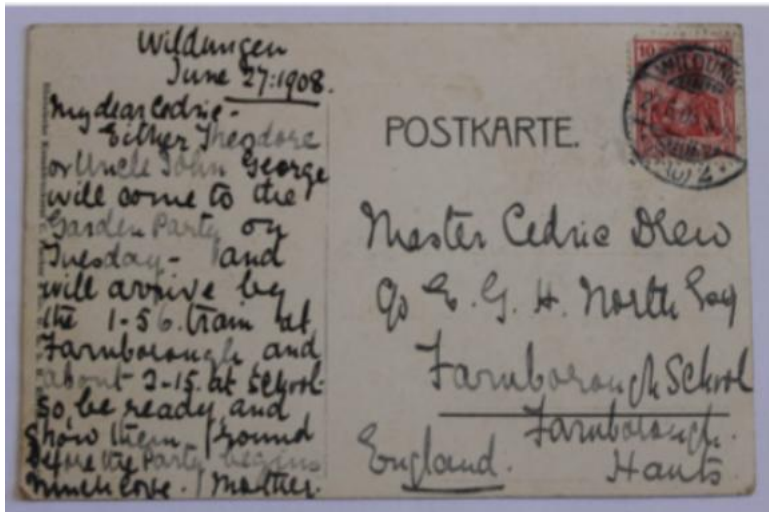 Wildungen
June 27:1908.
My dear Cedric-
Either Theodore
or Uncle John George
will come to the
Garden Party on
Tuesday- and
will arrive by
the 1-56. train at
Farnborough and
about 2-15. at School-
so, be ready and
show them round
before the Party begins
much love. Mother.
POSTKARTE.
10 10
Master Cedric Drew
c/o E. G. H. North Esq
Farnborough School
Farnborough.
Hants.
England.